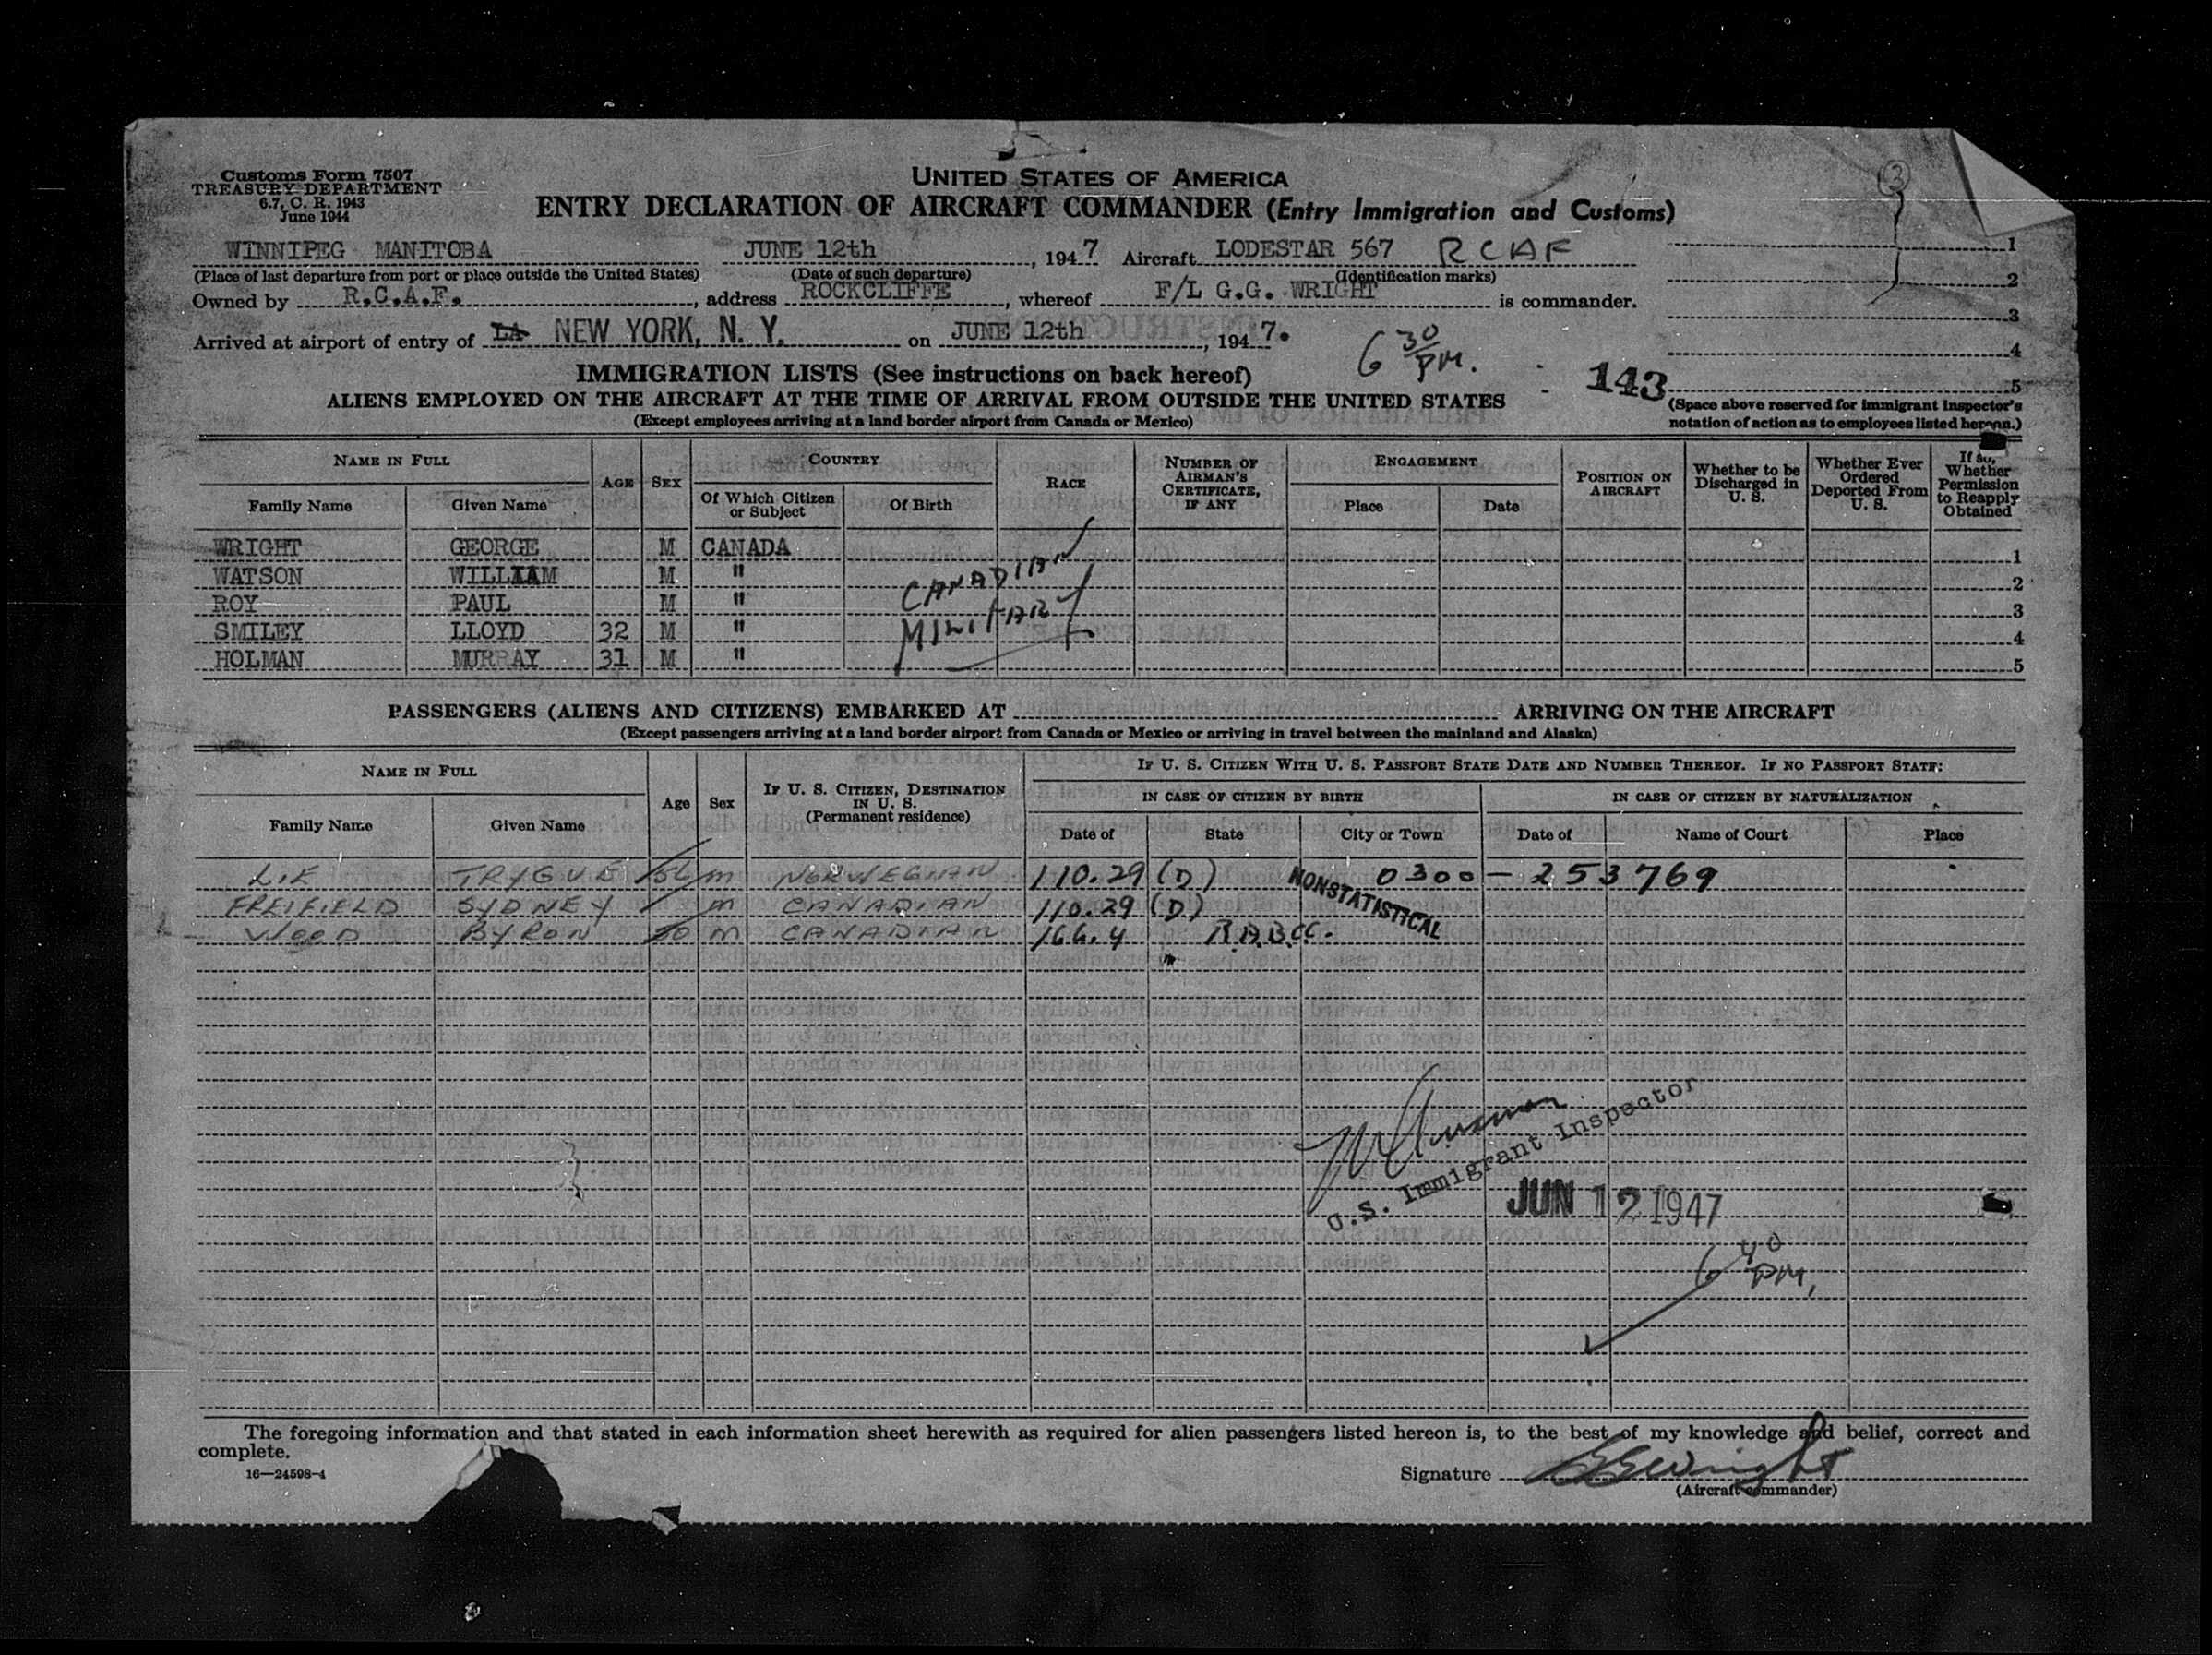 Customs Form 7507
TREASURY DEPARTMENT
6.7, C. R. 1943
June 1944
UNITED STATES OF AMERICA
ENTRY DECLARATION OF AIRCRAFT COMMANDER (Entry Immigration and Customs)
WINNIPEG MANITOBA JUNE 12th, 1947 Aircraft LODESTAR 567 RCAF 1
(Place of last departure from port or place outside the United States) (Date of such departure) (Identification marks) 2
Owned by R.C.A.F., address ROCKCLIFFE, whereof F/L G.G. WRIGHT is commander. 3
Arrived at airport of entry of LA NEW YORK, N. Y. on JUNE 12th, 1947. 6 30 PM. 4
IMMIGRATION LISTS (See instructions on back hereof) 143 5
ALIENS EMPLOYED ON THE AIRCRAFT AT THE TIME OF ARRIVAL FROM OUTSIDE THE UNITED STATES
(Except employees arriving at a land border airport from Canada or Mexico)
(Space above reserved for immigrant inspector's
notation of action as to employees listed hereon.)
NAME IN FULL AGE SEX COUNTRY RACE NUMBER OF AIRMAN'S CERTIFICATE, IF ANY ENGAGEMENT POSITION ON AIRCRAFT Whether to be Discharged in U. S. Whether Ever Ordered Deported From U. S. If so, Whether Permission to Reapply Obtained
Family Name Given Name Of Which Citizen or Subject Of Birth Place Date
WRIGHT GEORGE M CANADA 1
WATSON WILLIAM M " 2
ROY PAUL M " 3
SMILEY LLOYD 32 M " 4
HOLMAN MURRAY 31 M " 5
CANADIAN
MILITARY
PASSENGERS (ALIENS AND CITIZENS) EMBARKED AT ARRIVING ON THE AIRCRAFT
(Except passengers arriving at a land border airport from Canada or Mexico or arriving in travel between the mainland and Alaska)
NAME IN FULL Age Sex IF U. S. CITIZEN, DESTINATION IN U. S. (Permanent residence) IF U. S. CITIZEN WITH U. S. PASSPORT STATE DATE AND NUMBER THEREOF. IF NO PASSPORT STATE:
IN CASE OF CITIZEN BY BIRTH IN CASE OF CITIZEN BY NATURALIZATION
Family Name Given Name Date of State City or Town Date of Name of Court Place
LIE TRYGVE m NORWEGIAN 110.29 (D) 0300-253769
FREIFIELD SYDNEY m CANADIAN 110.29 (D)
WOOD BYRON m CANADIAN 166.4
NONSTATISTICAL
U.S. Immigrant Inspector
JUN 12 1947
6 40 PM.
The foregoing information and that stated in each information sheet herewith as required for alien passengers listed hereon is, to the best of my knowledge and belief, correct and
complete.
16—24598-4
Signature GGWright
(Aircraft commander)